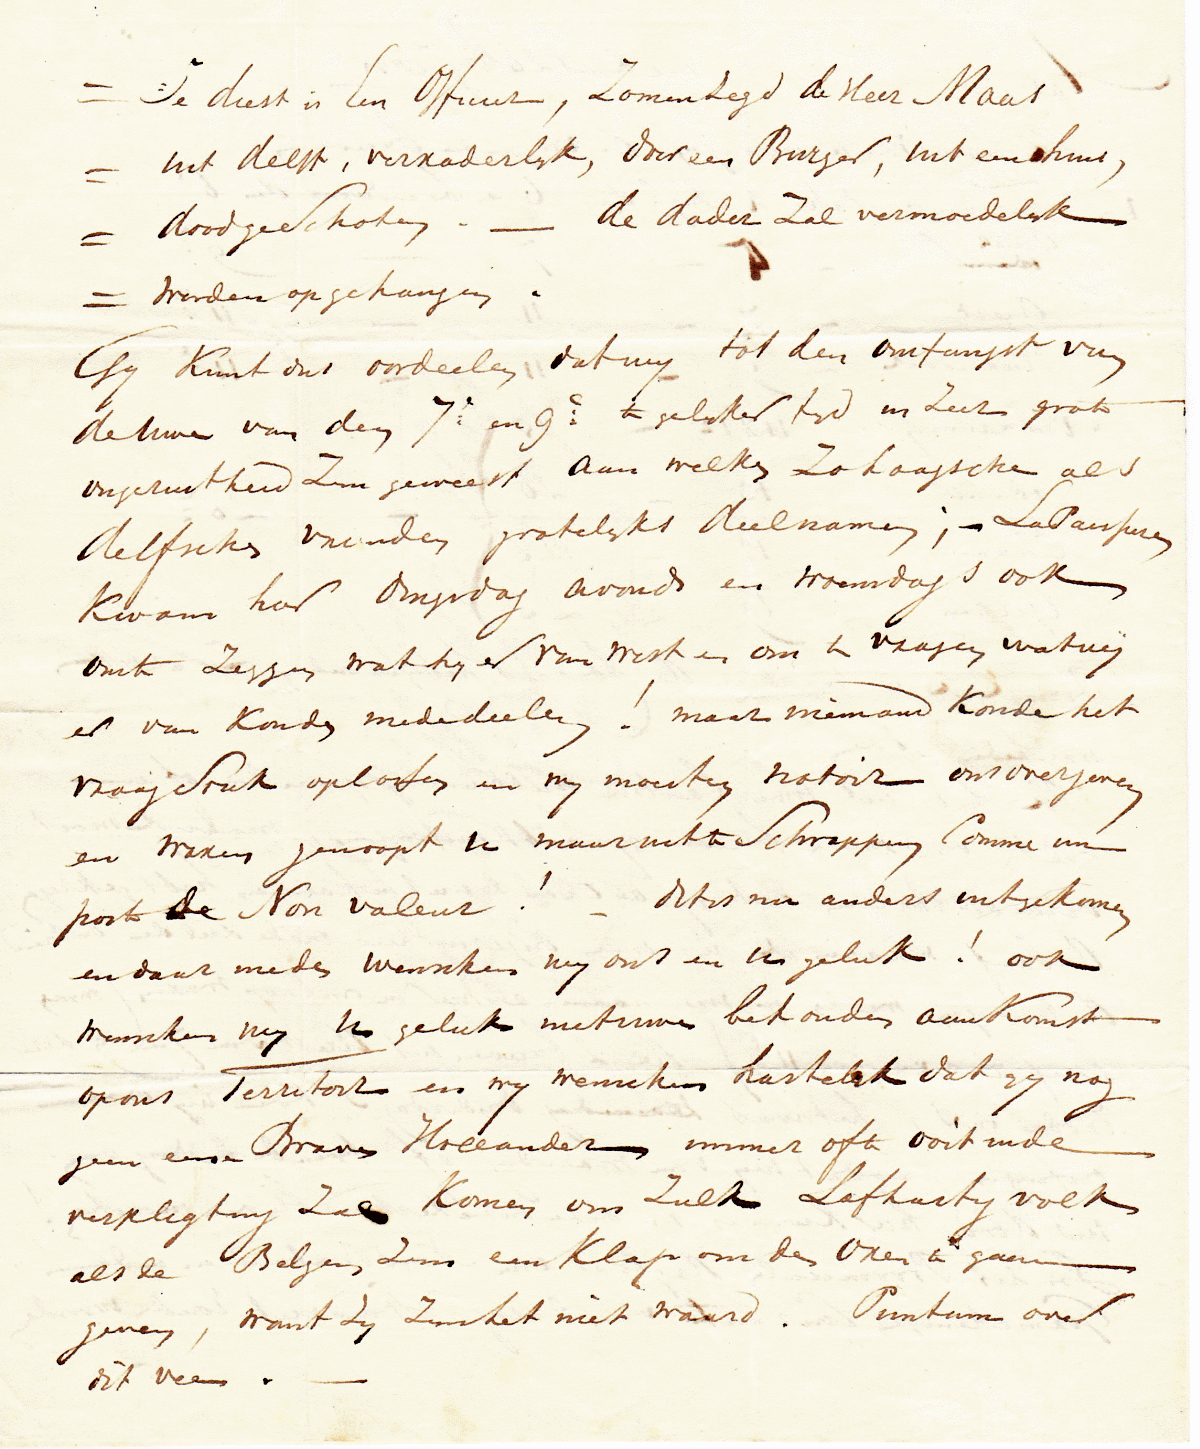 = Te diest is Een Officier, zomen zegd de Heer Maas
= uit delft, verraderlyk, door een Burger, uit een huis,
= doodgeschoten. — de dader zal vermoedelyk
= worden opgehangen.
Gy kunt ons oordeelen dat wy tot den omfangst van
de uwe van den 7e en 9e te gelyker tyd in zeer grote
ongerustheid zyn geweest aan welke zo haagsche als
delfsche vrienden grotelyks deelnamen; –
kwam hier dingsdag avond en woensdag s ook
om te zeggen wat hy er van wist en om te vragen wat wy
er van konden mededeelen! maar niemand konde het
vraagstuk oplossen en wy moesten notoir ons overgeven
en waren genoopt U maar uit te Schrappen Comme un
post de Non valeur! – dit is nu anders uitgekomen
en daar mede wenschen wy ons en U geluk! ook
wenschen wy U geluk met uwe behouden aankomst
op ons Territoir en wy wenschen hartelyk dat gy nog
geen eene Brave Hollander immer ofte ooit in de
verpligting zal komen om zulk Lafhartig volk
als de Belgen zyn een klap om de ooren te gaan
geven, want zy zyn het niet waard. Puntum over
dit vee. —